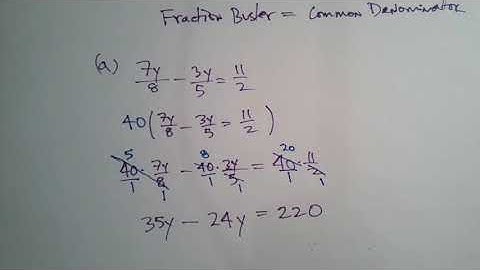 Fraction Buster = Common Denominator
(a) 7y/8 - 3y/5 = 11/2
40(7y/8 - 3y/5 = 11/2)
5 8 20
40/1 · 7y/8 - 40/1 · 3y/5 = 40/1 · 11/2
1 1 1
35y - 24y = 220